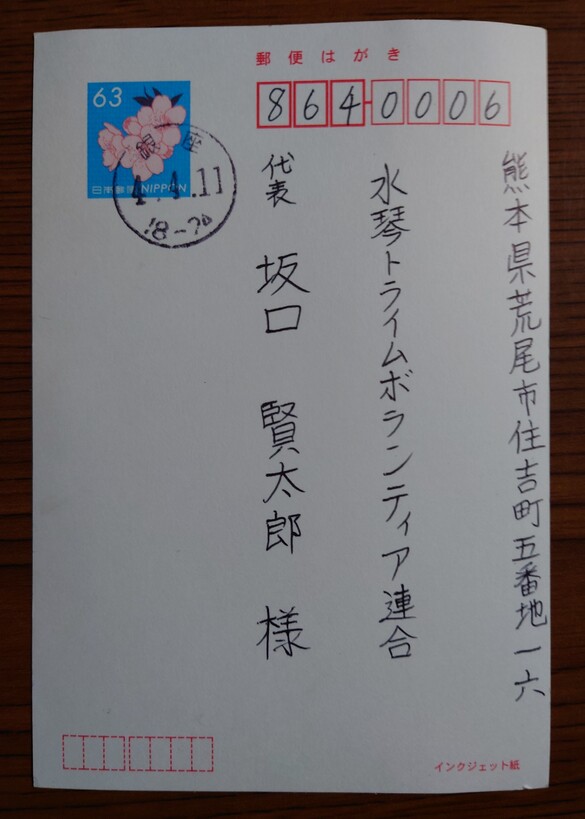 郵便はがき
63
日本郵便 NIPPON
銀座
4.4.11
18-24
864-0006
熊本県荒尾市住吉町五番地一六
水琴トライムボランティア連合
代表 坂口 賢太郎 様
インクジェット紙